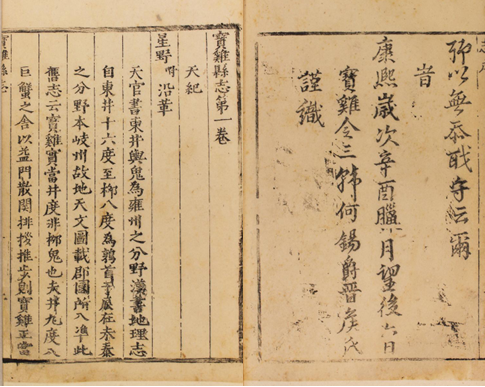 聊以無忝戢守云爾
旹
康熙歲次辛酉臘月望後六日
寶雞令三韓何錫爵晉侯氏
謹識
寶雞縣志第一卷
天紀
星野 附沿革
天官書東井輿鬼為雍州之分野漢書地理志
自東井十六度至柳八度為鶉首于辰在未秦
之分野本岐州故地天文圖載郡國所入準此
舊志云寶雞實當井度非柳鬼也夫井九度八
巨蟹之舍以益門散關排按推步則寶雞正當
寶雞縣志